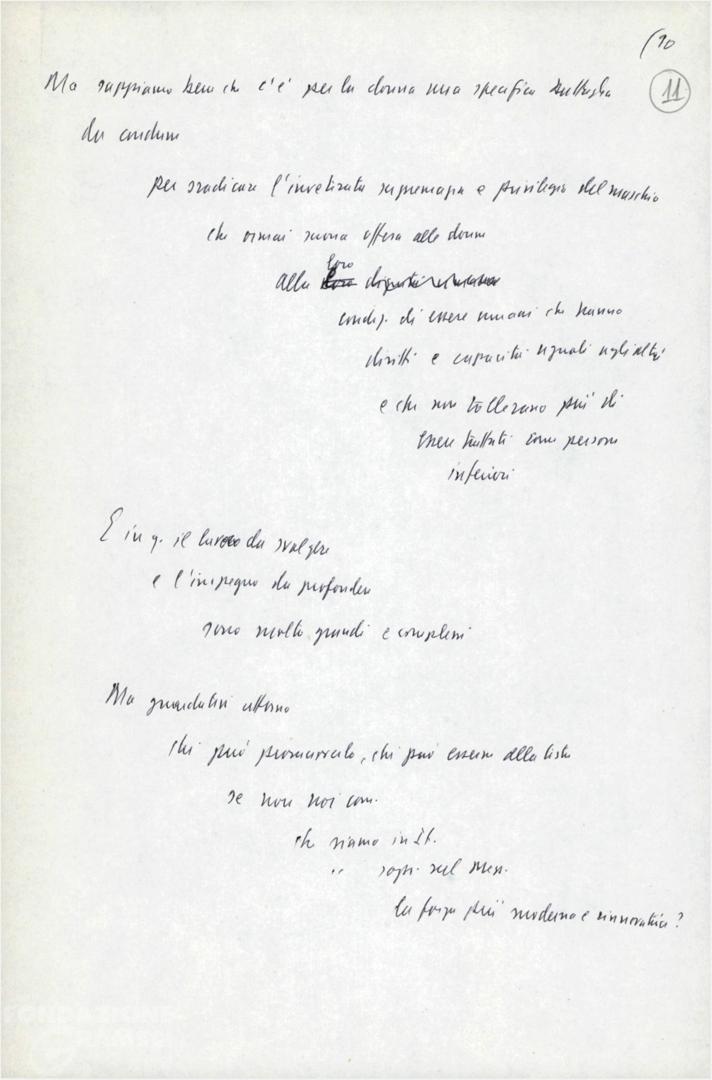 (10
11
Ma sappiamo bene che c'è per la donna una specifica battaglia
da condurre
per sradicare l'inveterata supremazia e privilegio del maschio
che ormai suona offesa alle donne
loro
alla
condiz. di esseri umani che hanno
diritti e capacità uguali agli altri
e che non tollerano più di
essere trattati come persone
inferiori
E in q. il lavoro da svolgere
e l'impegno da profondere
sono molto grandi e complessi
Ma guardatevi attorno
chi può promuoverlo, chi può esserne alla testa
se non noi com.
che siamo in It.
" sopr. nel Mezz.
la forza più moderna e rinnovatrice?